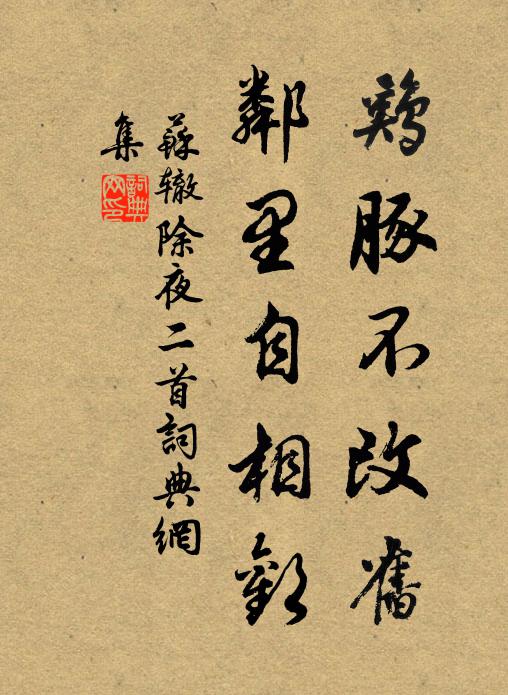 鷄豚不改舊
鄰里自相歡
蘇辙除夜二首詞典網
集
詞典网印